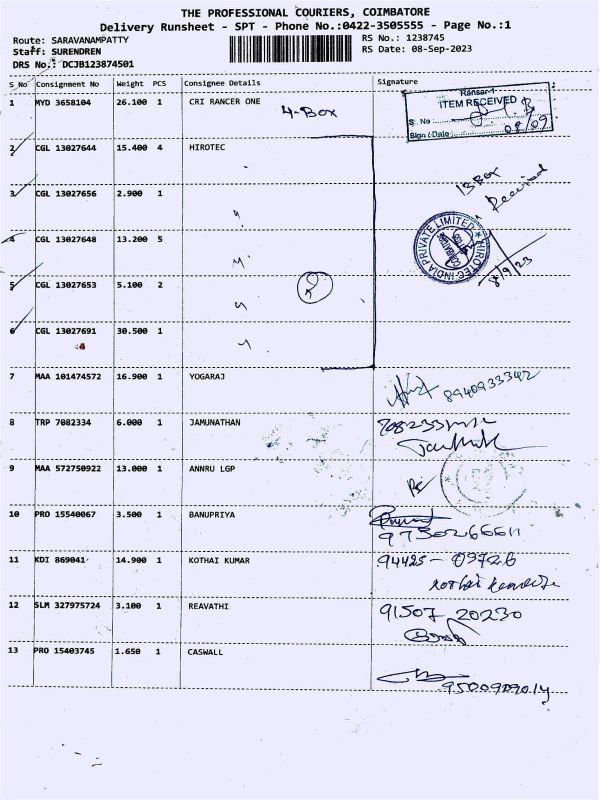 THE PROFESSIONAL COURIERS, COIMBATORE
Delivery Runsheet - SPT - Phone No.:0422-3505555 - Page No.:1
Route: SARAVANAMPATTY
RS No.: 1238745
Staff: SURENDREN
RS Date: 08-Sep-2023
DRS No.: DCJB123874501
S_No Consignment No Weight PCS Consignee Details Signature
1 MYD 3658104 26.100 1 CRI RANCER ONE
4-Box
Ransar-1
ITEM RECEIVED
S. No :
Sign / Date : 08/09
2 CGL 13027644 15.400 4 HIROTEC
13 Box
Received
3 CGL 13027656 2.900 1 "
HIROTEC INDIA PRIVATE LIMITED
8/9/23
4 CGL 13027648 13.200 5 "
5 CGL 13027653 5.100 2 "
6 CGL 13027691 30.500 1 "
7 MAA 101474572 16.900 1 YOGARAJ
8940933342
8 TRP 7082334 6.000 1 JAMUNATHAN
9 MAA 572750922 13.000 1 ANNRU LGP
10 PRO 15540067 3.500 1 BANUPRIYA
9750266611
11 KDI 869041 14.900 1 KOTHAI KUMAR
94425-09726
12 SLM 327975724 3.100 1 REAVATHI
91507 20230
13 PRO 15403745 1.650 1 CASWALL